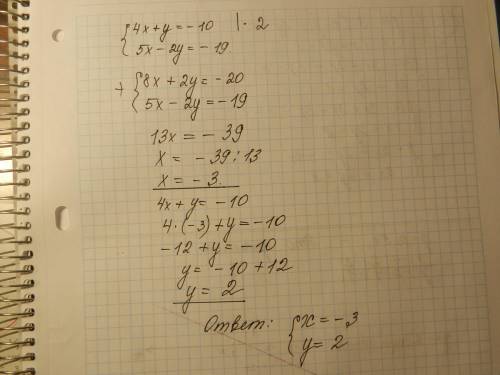 {4x+y=-10 | · 2
{5x-2y=-19.
+ {8x+2y=-20
{5x-2y=-19
13x=-39
x= -39:13
x= -3.
4x+y=-10
4·(-3)+y=-10
-12+y=-10
y= -10+12
y= 2
Ответ: {x=-3
{y=2